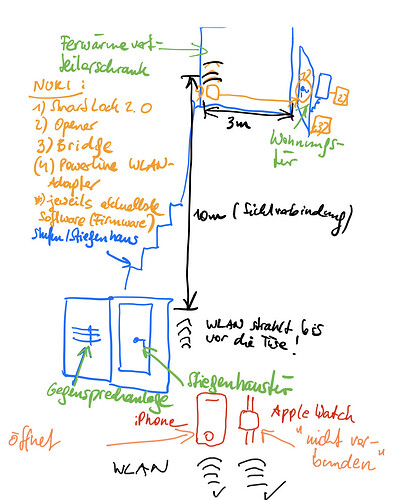 Ferwärmevert-
teilerschrank
NUKI:
1) Smart Lock 2.0
2) Opener
3) Bridge
(4) Powerline WLAN-
Adapter
*) jeweils aktuellste
Software (Firmware)
Stufen/Stiegenhaus
3m
Wohnungs-
tür
10m (Sichtverbindung)
WLAN strahlt bis
vor die Türe!
Gegensprechanlage
Stiegenhaustür
iPhone
Apple Watch
öffnet
"nicht ver-
bunden"
WLAN